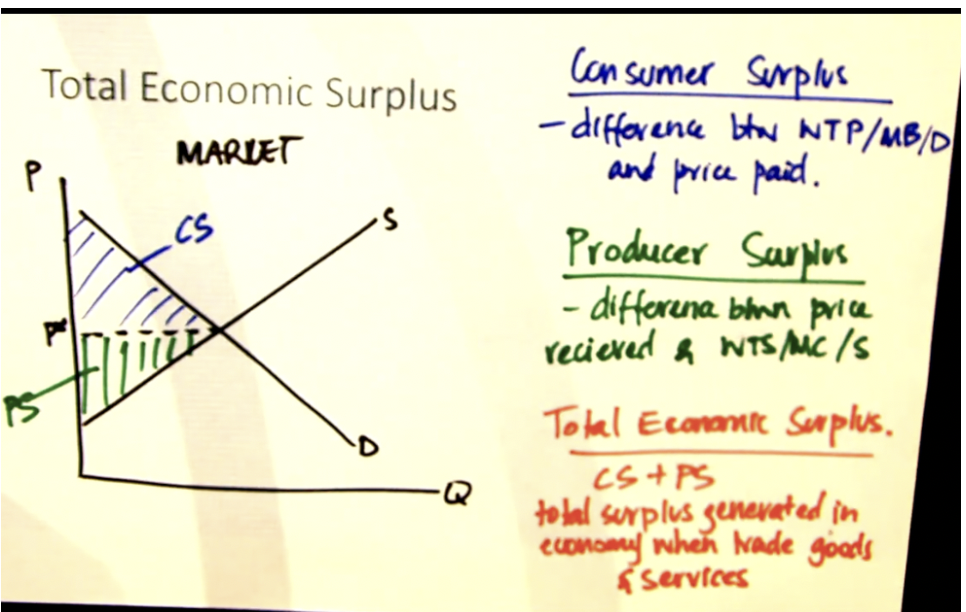 Total Economic Surplus
MARKET
P
CS
S
P*
PS
D
Q
Consumer Surplus
- difference btw WTP/MB/D
and price paid.
Producer Surplus
- difference btwn price
recieved & WTS/MC/S
Total Economic Surplus.
CS + PS
total surplus generated in
economy when trade goods
& services